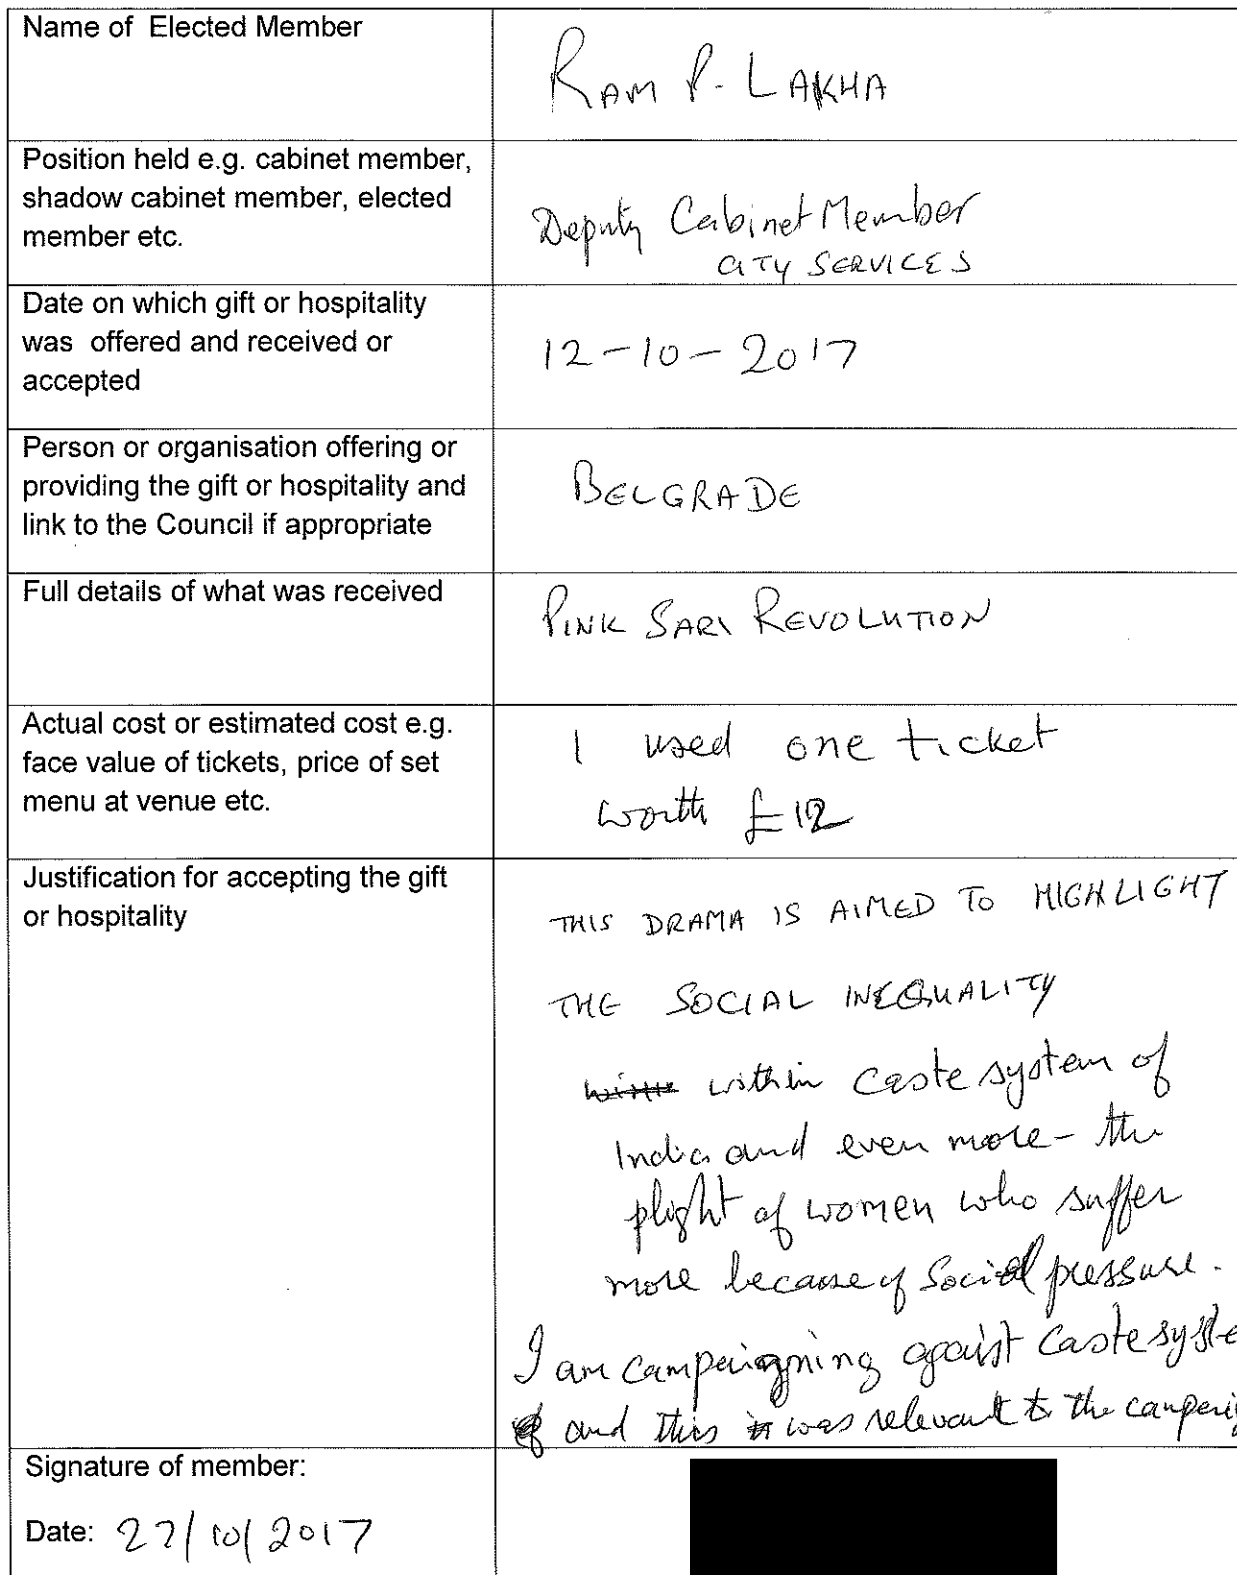 Name of Elected Member
RAM P. LAKHA
Position held e.g. cabinet member,
shadow cabinet member, elected
member etc.
Deputy Cabinet Member
CITY SERVICES
Date on which gift or hospitality
was offered and received or
accepted
12-10-2017
Person or organisation offering or
providing the gift or hospitality and
link to the Council if appropriate
BELGRADE
Full details of what was received
PINK SARI REVOLUTION
Actual cost or estimated cost e.g.
face value of tickets, price of set
menu at venue etc.
I used one ticket
worth £12
Justification for accepting the gift
or hospitality
THIS DRAMA IS AIMED TO HIGHLIGHT
THE SOCIAL INEQUALITY
within caste system of
India and even more - the
plight of women who suffer
more because of social pressure.
I am campaigning against caste syste
and this was relevant to the campaig
Signature of member:
Date: 27/10/2017